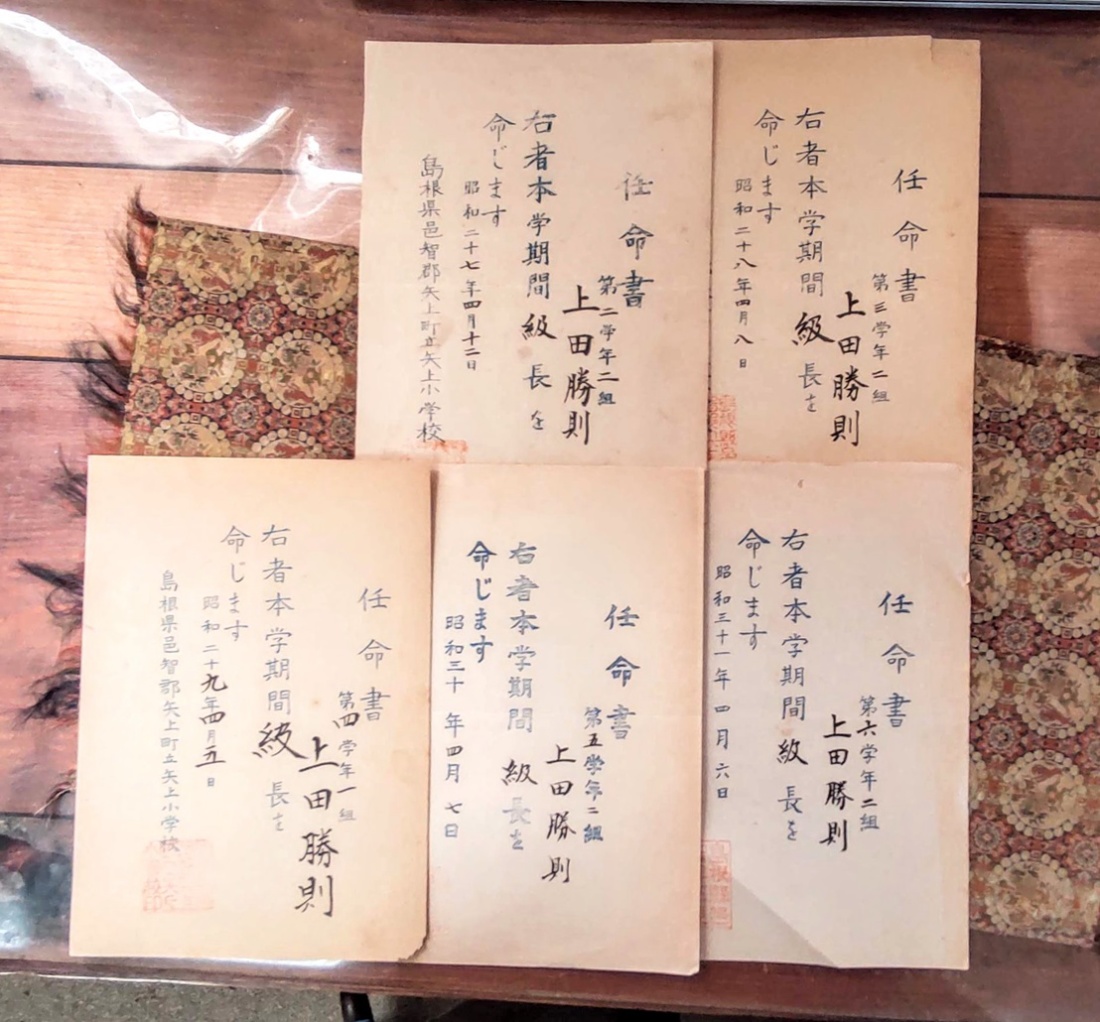 任命書
第二学年二組
上田勝則
右者本学期間級長を
命じます
昭和二十七年四月十二日
島根県邑智郡矢上町立矢上小学校
任命書
第三学年二組
上田勝則
右者本学期間級長を
命じます
昭和二十八年四月八日
任命書
第四学年一組
上田勝則
右者本学期間級長を
命じます
昭和二十九年四月五日
島根県邑智郡矢上町立矢上小学校
任命書
第五学年二組
上田勝則
右者本学期間級長を
命じます
昭和三十年四月七日
任命書
第六学年二組
上田勝則
右者本学期間級長を
命じます
昭和三十一年四月六日